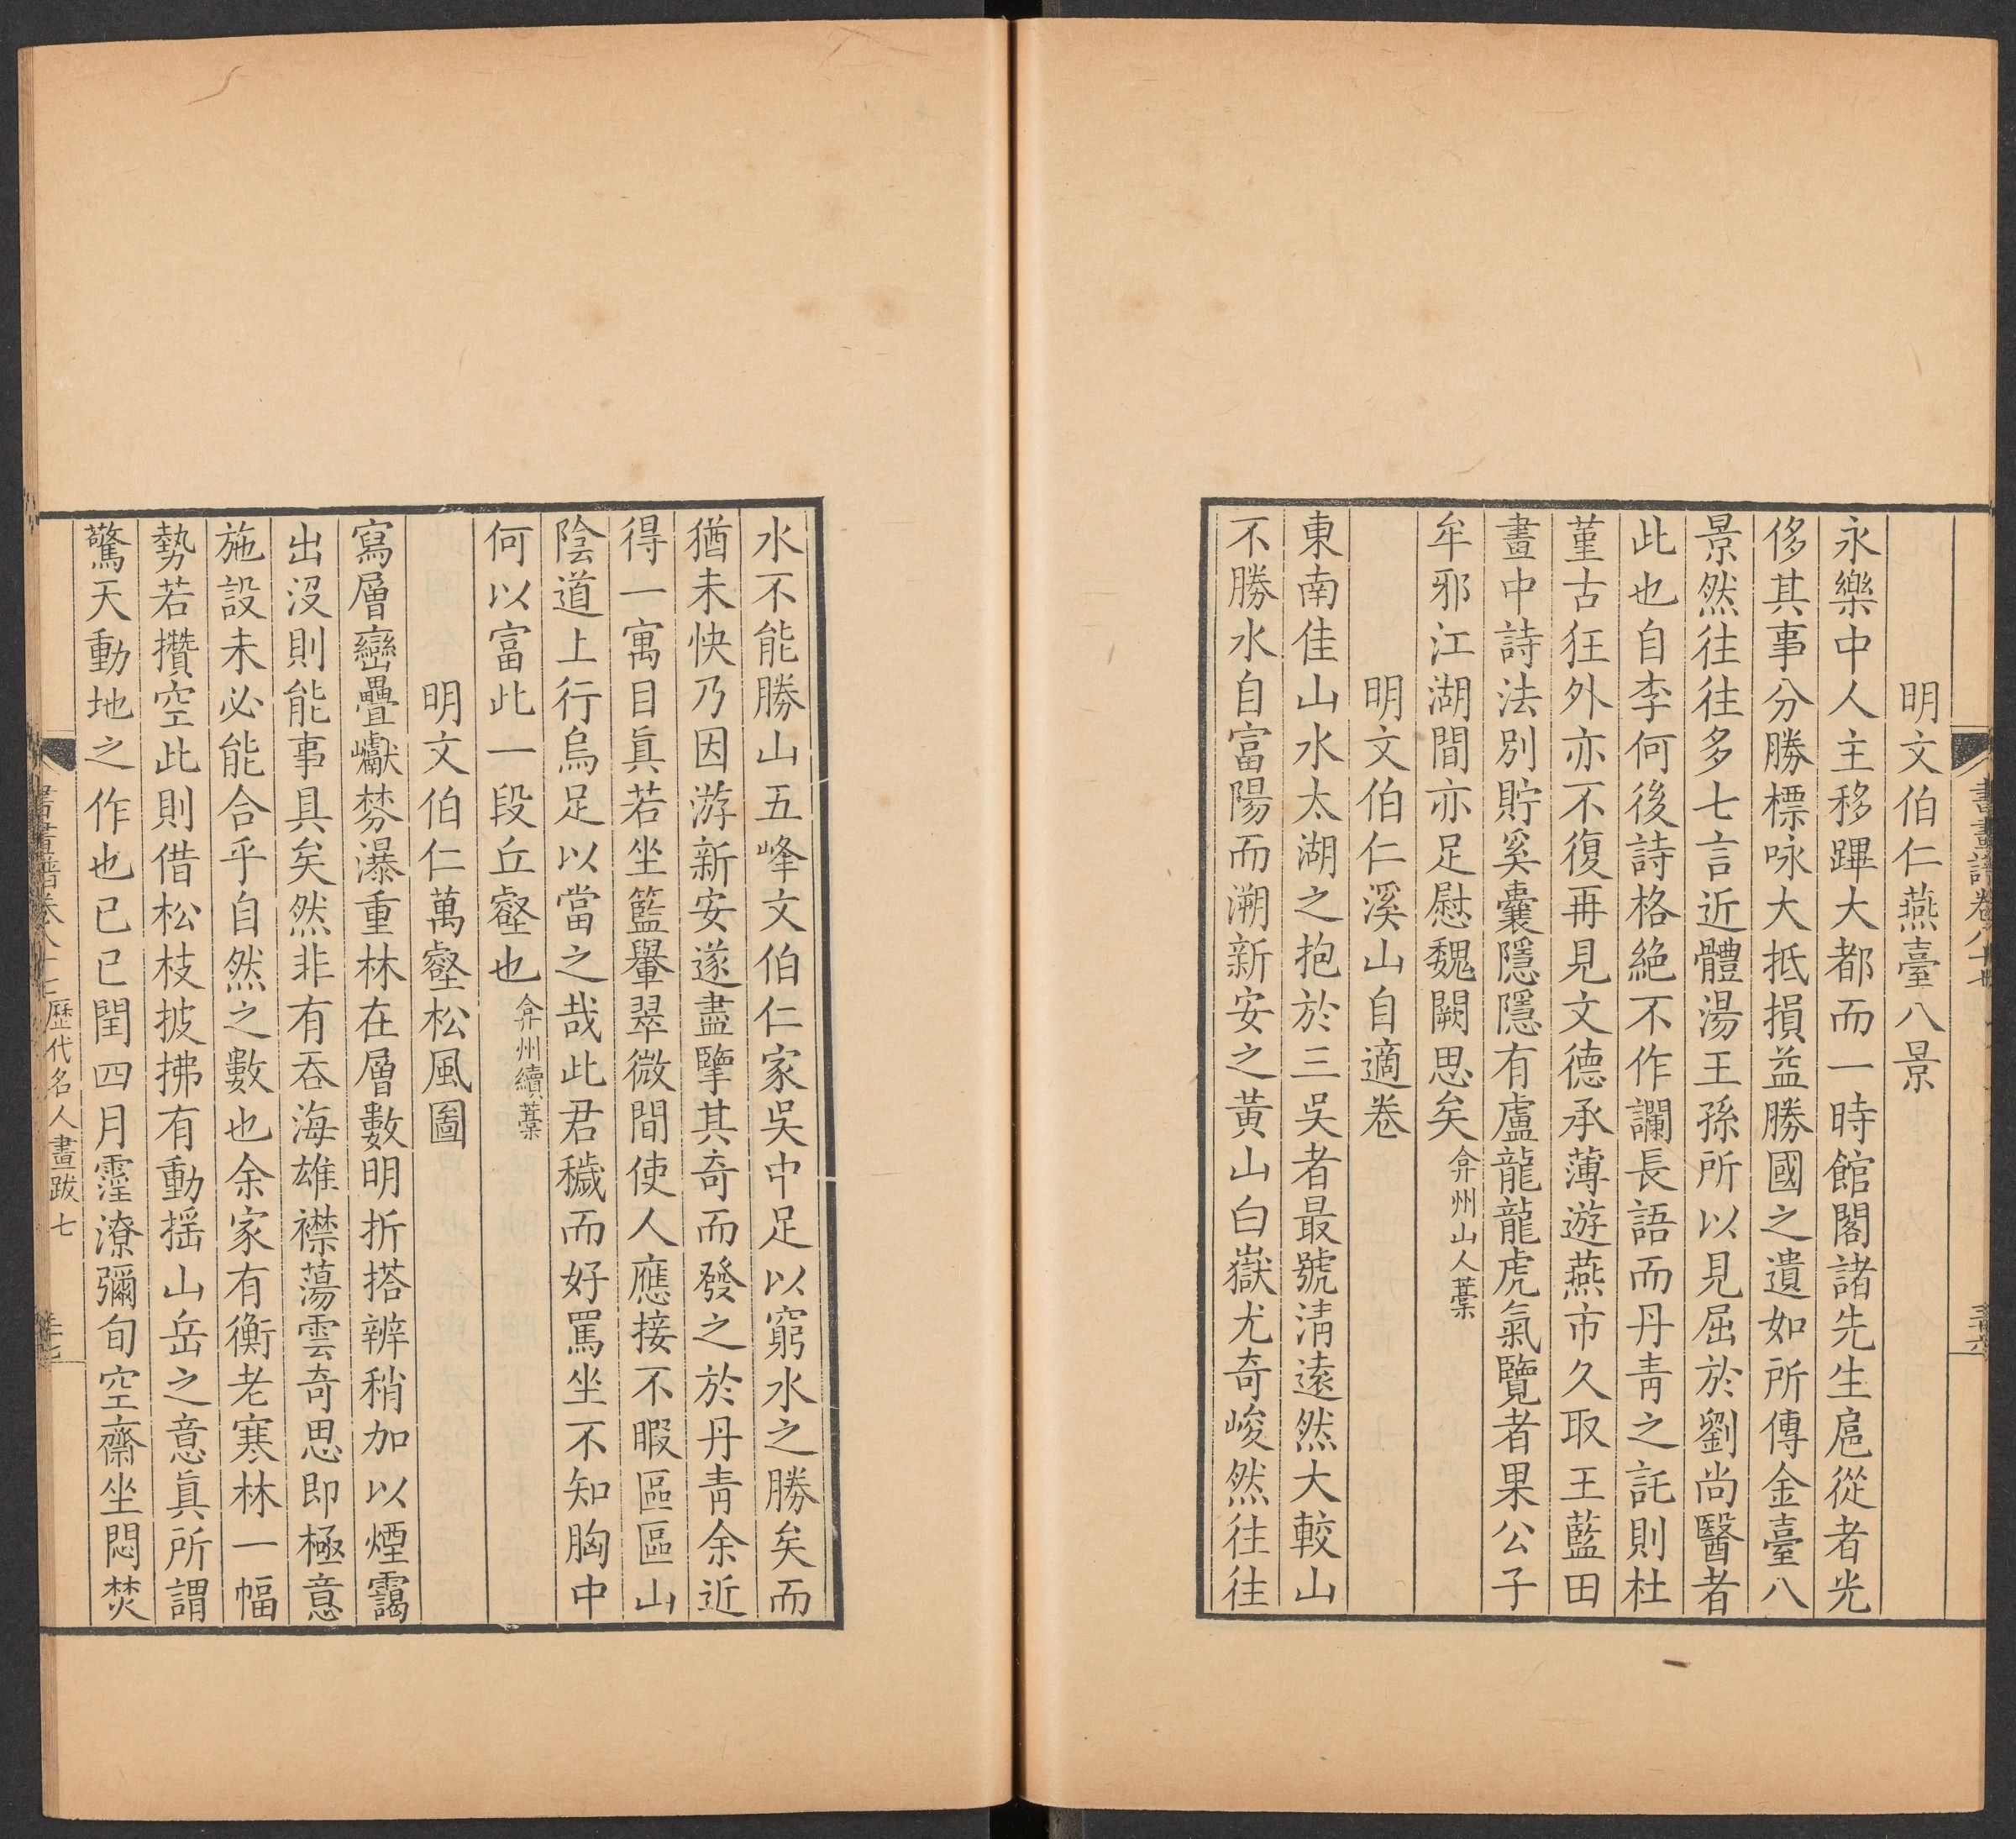 明文伯仁燕臺八景
永樂中人主移蹕大都而一時館閣諸先生扈從者光
侈其事分勝標咏大抵損益勝國之遺如所傳金臺八
景然往往多七言近體湯王孫所以見屈於劉尚醫者
此也自李何後詩格絶不作讕長語而丹靑之託則杜
堇古狂外亦不復再見文德承薄遊燕市久取王藍田
畫中詩法別貯奚囊隱隱有盧龍龍虎氣覽者果公子
牟邪江湖間亦足慰魏闕思矣弇州山人藁
明文伯仁溪山自適卷
東南佳山水太湖之抱於三吳者最號淸遠然大較山
不勝水自富陽而溯新安之黃山白嶽尤奇峻然往往
水不能勝山五峰文伯仁家吳中足以窮水之勝矣而
猶未快乃因游新安遂盡擥其奇而發之於丹靑余近
得一寓目眞若坐籃轝翠微間使人應接不暇區區山
陰道上行烏足以當之哉此君穢而好罵坐不知胸中
何以富此一段丘壑也弇州續藁
明文伯仁萬壑松風圖
寫層巒疊巘棼瀑重林在層數明折搭辨稍加以煙靄
出沒則能事具矣然非有吞海雄襟蕩雲奇思即極意
施設未必能合乎自然之數也余家有衡老寒林一幅
勢若攢空此則借松枝披拂有動摇山岳之意眞所謂
驚天動地之作也己巳閏四月霪潦彌旬空齋坐悶焚
書畫譜卷八十七 歷代名人畫跋七